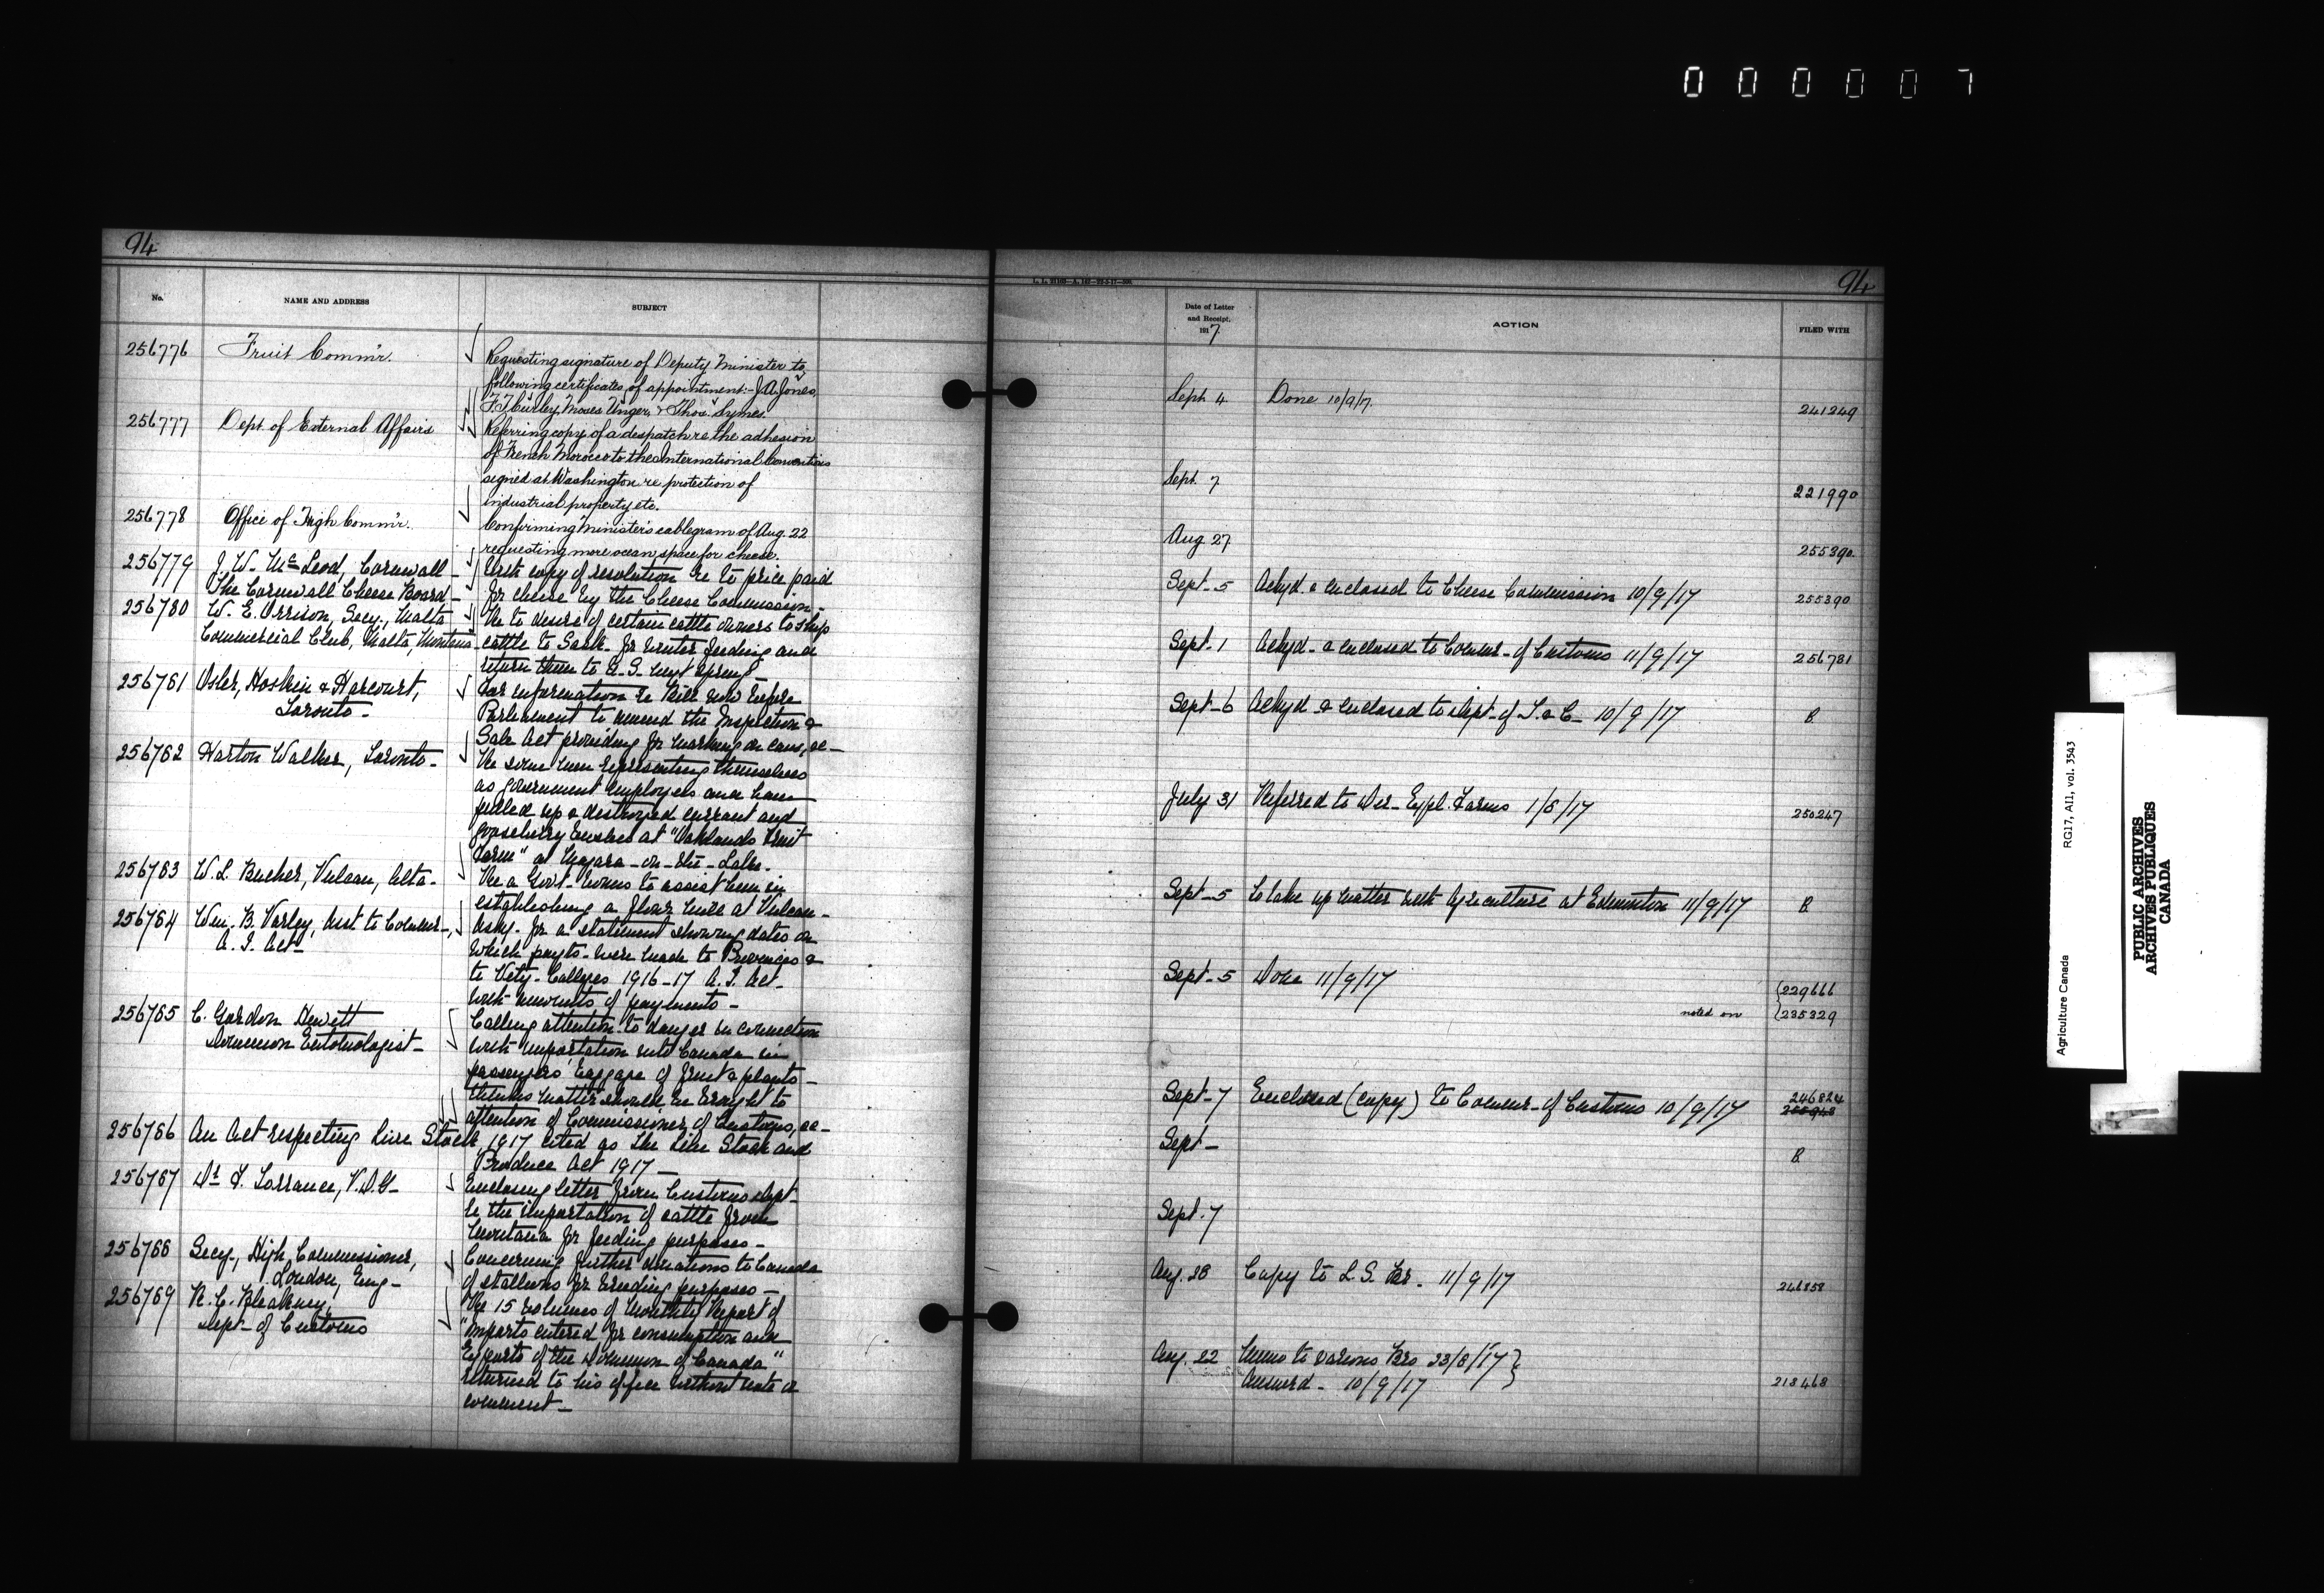 0 0 0 0 0 7
94
No.
NAME AND ADDRESS
SUBJECT
256776
Fruit Comm'r.
Requesting signature of Deputy Minister to
following certificates of appointment:- J.A. Jones,
F. J. Curley, Moses Unger, & Thos. Symes.
256777
Dept. of External Affairs
Referring copy of a despatch re the adhesion
of French Morocco to the International Conventions
signed at Washington re protection of
industrial property etc.
256778
Office of High Comm'r.
Confirming Minister's cablegram of Aug. 22
requesting more ocean space for cheese.
256779
J. W. McLeod, Cornwall
The Cornwall Cheese Board
With copy of resolution re to price paid
for cheese by the Cheese Commission-
256780
W. E. Orrison, Secy., Malta
Commercial Club, Malta, Montana
Re to desire of certain cattle owners to ship
cattle to Sask. for winter feeding and
return them to U.S. next spring-
256781
Osler, Hoskin & Harcourt,
Toronto-
For information re Bill now before
Parliament to amend the Inspection &
Sale Act providing for marking on cans, &c-
256782
Harton Walker, Toronto-
Re some men representing themselves
as government employees and have
pulled up & destroyed currant and
gooseberry bushes at "Oaklands Fruit
Farm" at Niagara-on-the-Lake.
256783
W. L. Bucher, Vulcan, Alta.
Re a Govt. bonus to assist him in
establishing a flour mill at Vulcan-
256784
Wm. B. Varley, Asst to Commr-,
A. I. Act-
Asky. for a statement showing dates on
which payts. were made to Provinces &
to Vety. Colleges 1916-17 A. I. Act-
with amounts of payments-
256785
C. Gordon Hewitt
Dominion Entomologist-
Calling attention to danger in connection
with importation into Canada in
passengers' baggage of fruit & plants-
thinks matter should be brought to
attention of Commissioner of Customs, &c-
256786
An Act respecting Live Stock, 1917 cited as The Live Stock and
Produce Act 1917-
256787
Dr. F. Torrance, V.D.G-
Enclosing letter from Customs Dept-
re the importation of cattle from
Montana for feeding purposes-
256788
Secy., High Commissioner,
London, Eng-
Concerning further donations to Canada
of stallions for breeding purposes-
256789
R. C. Blakeney,
Dept- of Customs
Re 15 volumes of Monthly Report of
"Imports entered for consumption and
Exports of the Dominion of Canada"
returned to his office without note or
comment-
94
Date of Letter
and Receipt.
1917.
ACTION
FILED WITH
Sept. 4
Done 10/9/17.
241249
Sept. 7
221990
Aug. 27
255390.
Sept-5
Ackyd & enclosed to Cheese Commission 10/9/17
255390
Sept-1
Ackyd- & enclosed to Commr- of Customs 11/9/17
256781
Sept-6
Ackyd & enclosed to Dept- of T. & C- 10/9/17
B
July 31
Referred to Dir- Expl. Farms 1/8/17
250247
Sept-5
To take up matter with Agriculture at Edmonton 11/9/17
B
Sept-5
Done 11/9/17
229666
noted on
235329
Sept-7
Enclosed (copy) to Commr- of Customs 10/9/17
246824
Sept-
B
Sept. 7
Aug. 28
Copy to L. S. Br. 11/9/17
246858
Aug. 22
Memo to various Brs 23/8/17
Answerd- 10/9/17
218468
Agriculture Canada
RG17, AII, vol. 3543
PUBLIC ARCHIVES
ARCHIVES PUBLIQUES
CANADA